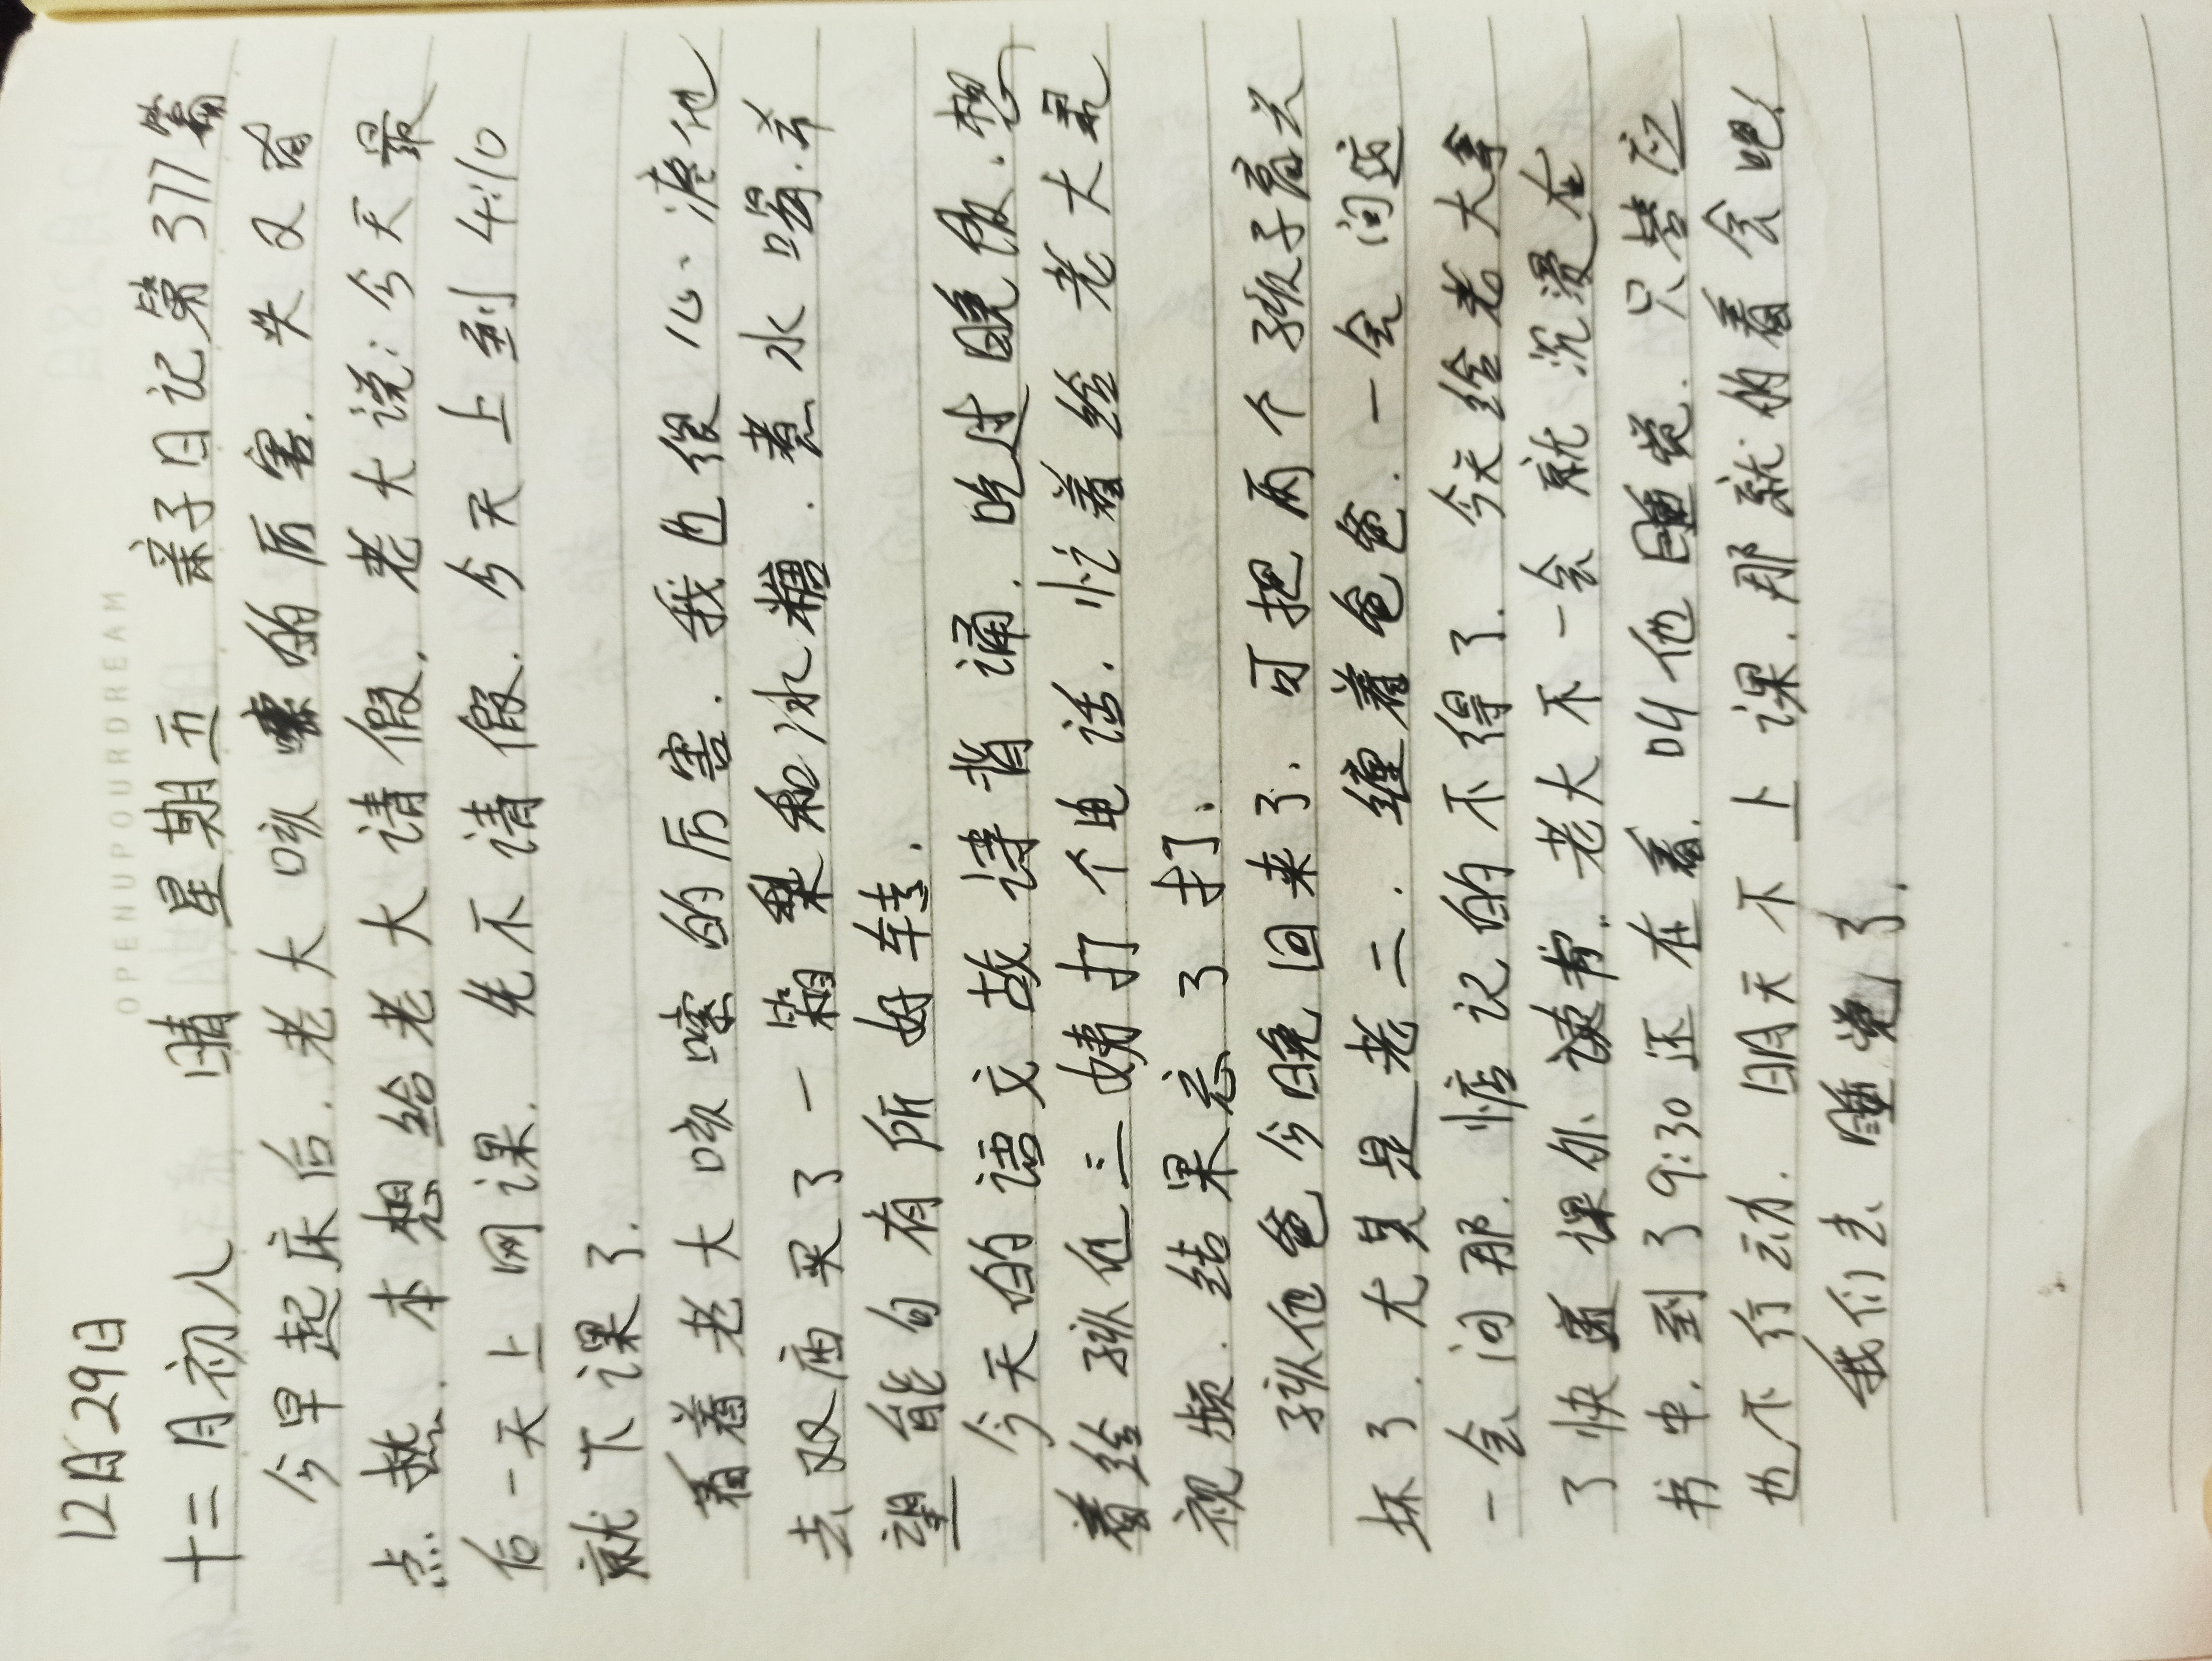 OPENUPOURDREAM
12月29日
十二月初八 晴 星期五 亲子日记第377篇
今早起床后.老大咳嗽的厉害.头又有
点热.本想给老大请假.老大说:今天最
后一天上网课.先不请假.今天上到4:10
就下课了.
看着老大咳嗽的厉害.我也很心疼他
去双庙买了一箱梨和冰糖.煮水喝.希
望能有所好转.
今天的语文故诗背诵.吃过晚饭.想
着给孙他三姨打个电话.忙着给老大录
视频.结果忘了打.
孙他爸今晚回来了.可把两个孩子高兴
坏了.尤其是老二.缠着爸爸.一会问这
一会问那.惦记的不得了.今天给老大拿
了快递课外读书.老大不一会就沉浸在
书中.到了9:30还在看.叫他睡觉.只答应
也不行动.明天不上课.那就的看会吧!
我们去睡觉了.